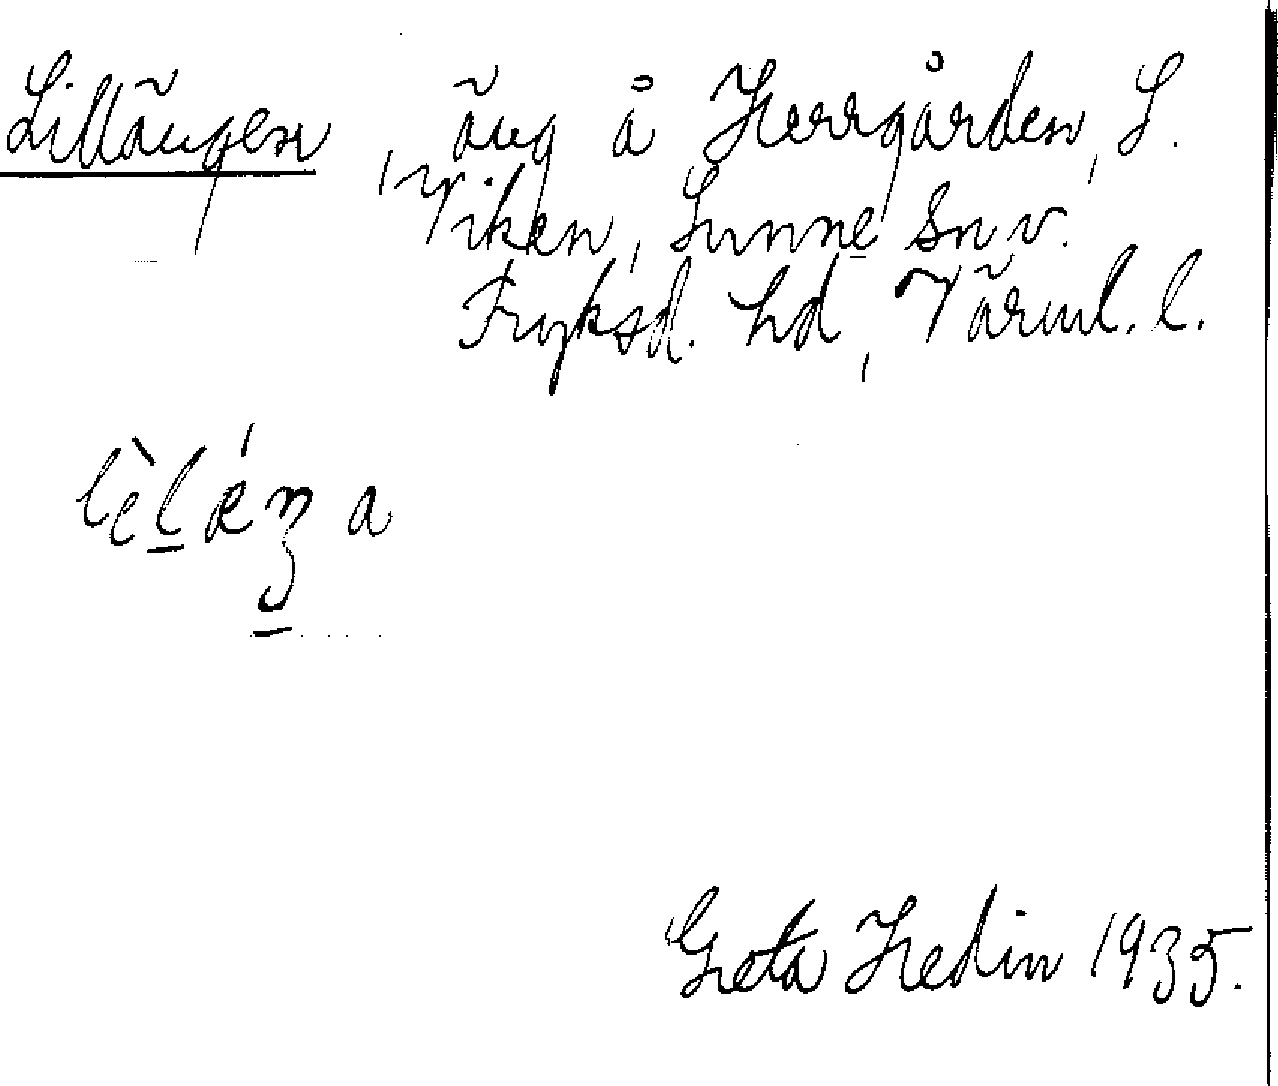 Lillängen, äng å Herrgården, S.
Viken, Sunne Sn v.
Fryksd. hd, Värml. l.
Greta Hedin 1935.